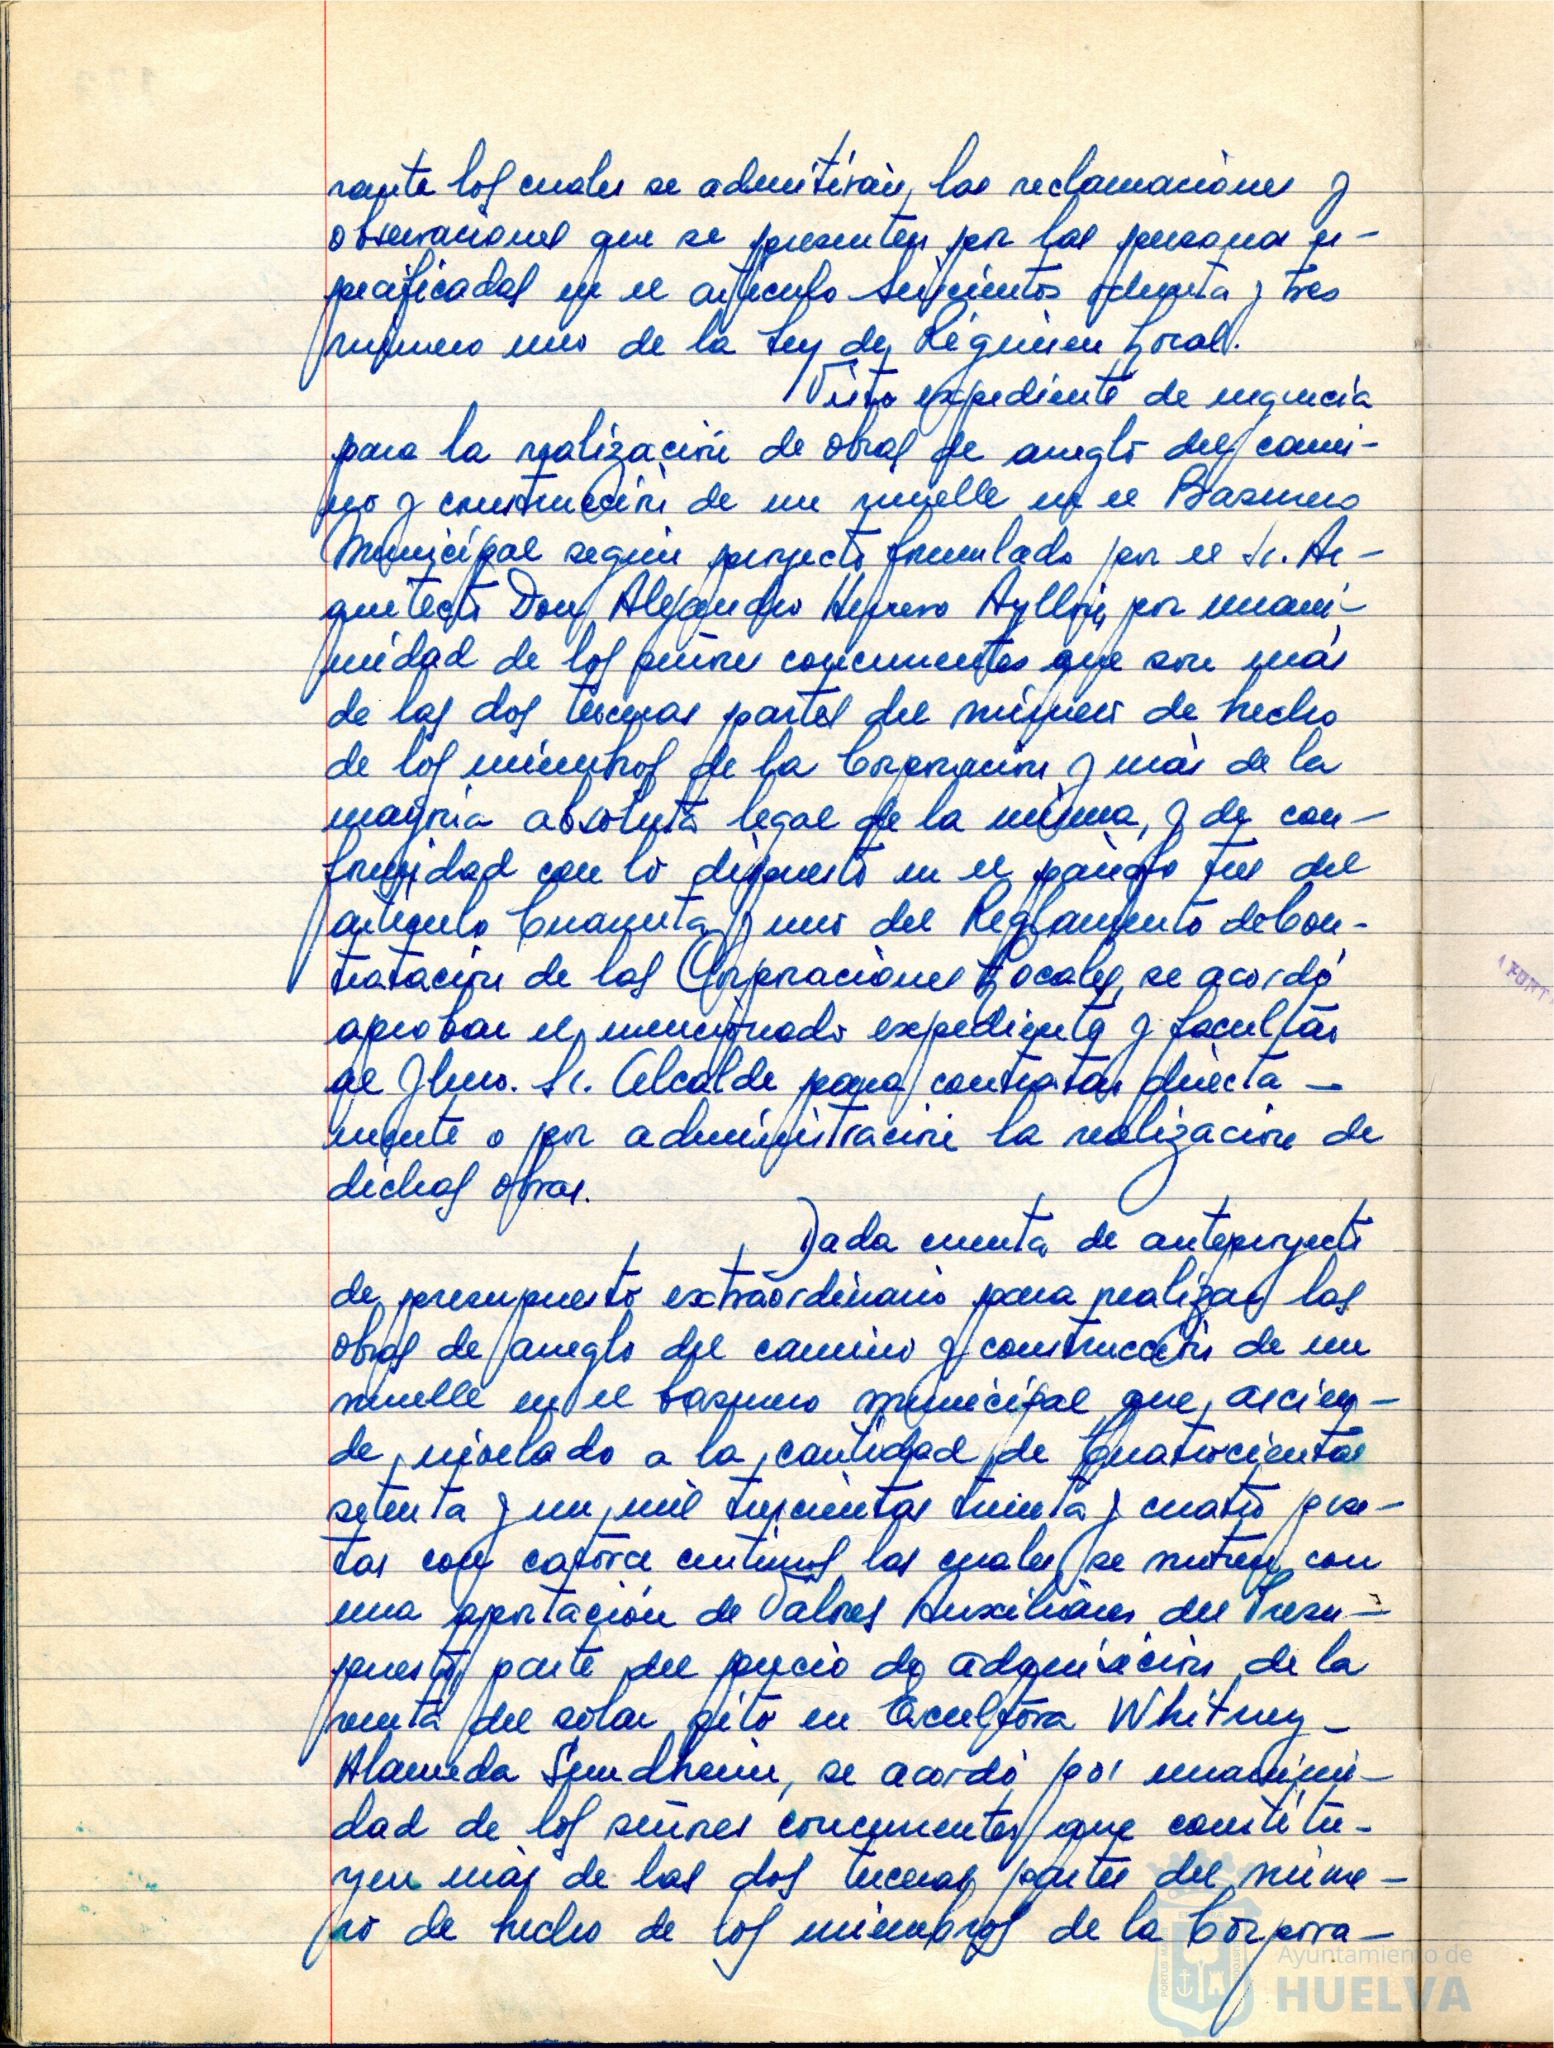 rante los cuales se admitirán las reclamaciones y
observaciones que se presenten por las personas es-
pecificadas en el artículo seiscientos ochenta y tres
número uno de la Ley de Régimen Local.
Visto expediente de urgencia
para la realización de obras de arreglo del cami-
no y construcción de un muelle en el Basurero
Municipal según proyecto formulado por el Sr. Ar-
quitecto Don Alejandro Herrero Ayllón, por unani-
midad de los señores concurrentes que son más
de las dos terceras partes del número de hecho
de los miembros de la Corporación y más de la
mayoría absoluta legal de la misma, y de con-
formidad con lo dispuesto en el párrafo tres del
artículo Cuarenta y uno del Reglamento de Con-
tratación de las Corporaciones Locales, se acordó
aprobar el mencionado expediente y facultar
al Ilmo. Sr. Alcalde para contratar directa-
mente o por administración la realización de
dichas obras.
Dada cuenta de anteproyecto
de presupuesto extraordinario para realizar las
obras de arreglo del camino y construcción de un
muelle en el basurero municipal que ascien-
de nivelado a la cantidad de Cuatrocientas
setenta y un mil trescientas treinta y cuatro pese-
tas con catorce centimos las cuales se nutren con
una aportación de Valores Auxiliares del Presu-
puesto, parte del precio de adquisición de la
venta del solar sito en Escultora Whitney-
Alameda Sundheim, se acordó por unanimi-
dad de los señores concurrentes que constitu-
yen más de las dos terceras partes del núme-
ro de hecho de los miembros de la Corpora-
Ayuntamiento de
HUELVA